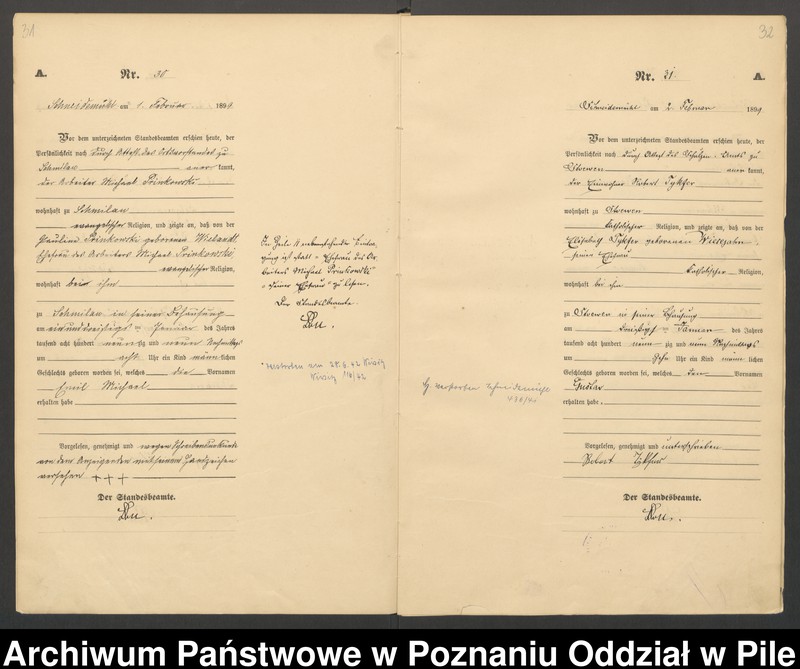 31
A. Nr. 30
Schneidemühl am 1. Februar 1899.
Vor dem unterzeichneten Standesbeamten erschien heute, der
Persönlichkeit nach durch Attest des Ortsvorstandes zu
Schmilau anerkannt,
der Arbeiter Michael Prinkowski
wohnhaft zu Schmilau
evangelischer Religion, und zeigte an, daß von der
Pauline Prinkowski geborenen
Ehefrau des Arbeiters Michael Prinkowski
evangelischer Religion,
wohnhaft bei ihm
zu Schmilau in seiner Behausung
am einunddreißigsten Januar des Jahres
tausend acht hundert neunzig und neun Nachmittags
um acht Uhr ein Kind männlichen
Geschlechts geboren worden sei, welches die Vornamen
Emil Michael
erhalten habe
Vorgelesen, genehmigt und wegen Schreibensunkunde
von dem Anzeigenden mit seinem Handzeichen
versehen +++
Der Standesbeamte.
In Zeile 11 nebenstehender Eintra-
gung ist statt "Ehefrau des Ar-
beiters Michael Prinkowski"
"seiner Ehefrau" zu lesen.
Der Standesbeamte
verstorben am 28.6.42
32
Nr. 31. A.
Schneidemühl am 2. Februar 1899
Vor dem unterzeichneten Standesbeamten erschien heute, der
Persönlichkeit nach durch Attest des Schulzen-Amts zu
Stöwen anerkannt,
der Robert Tykfer
wohnhaft zu Stöwen
katholischer Religion, und zeigte an, daß von der
Elisabeth Tykfer geborenen
seiner Ehefrau
katholischer Religion,
wohnhaft bei ihm
zu Stöwen in seiner Behausung
am Januar des Jahres
tausend acht hundert neunzig und neun Nachmittags
um zehn Uhr ein Kind männlichen
Geschlechts geboren worden sei, welches den Vornamen
erhalten habe.
Vorgelesen, genehmigt und unterschrieben
Robert
Der Standesbeamte.
verstorben Schneidemühl
Archiwum Państwowe w Poznaniu Oddział w Pile